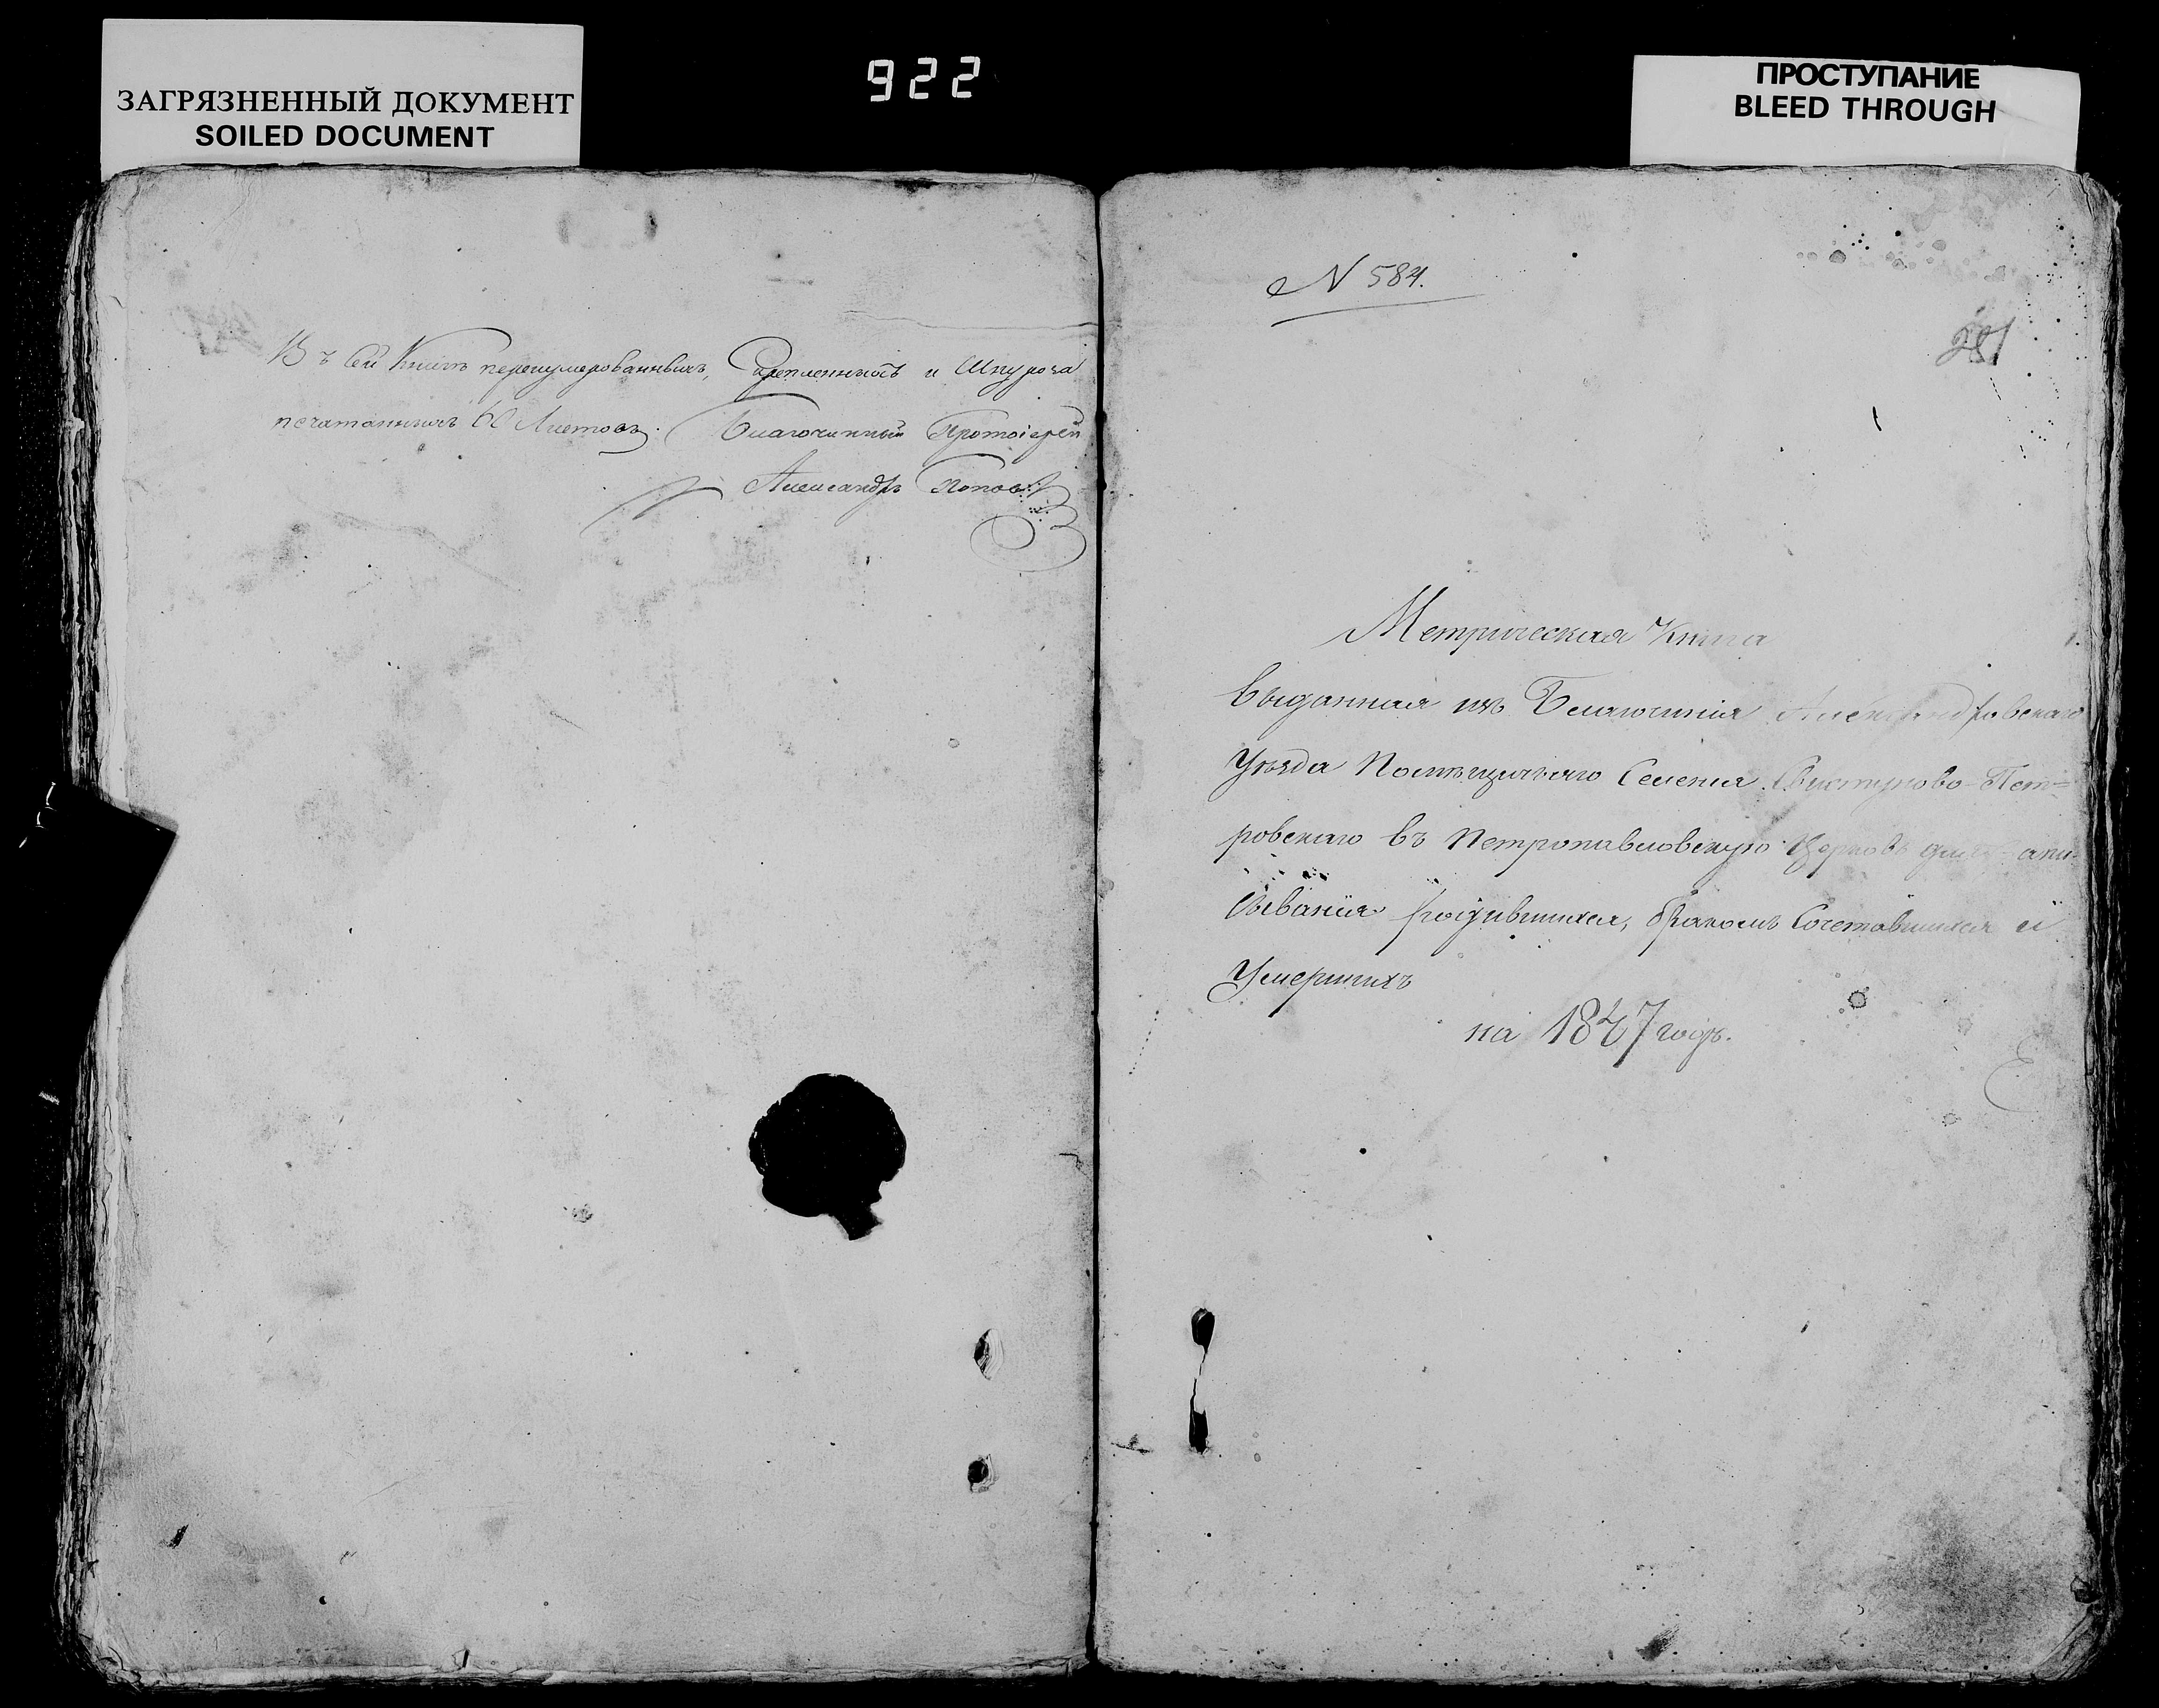 ЗАГРЯЗНЕННЫЙ ДОКУМЕНТ
SOILED DOCUMENT
922
ПРОСТУПАНИЕ
BLEED THROUGH
Въ сей Книгѣ перенумерованныхъ, Скрепленныхъ и Шнуроза
печатанныхъ 60 Листовъ. Благочинный Протоіерей
Александръ Поповъ
N 584.
281
Метрическая Книга
выданная изъ Благочинія Александровскаго
Уѣзда Помѣщичьяго Селенія Свистуново-Пет=
ровскаго въ Петропавловскую Церковь для запи-
сыванія родившихся, бракомъ Сочетавшихся и
Умершихъ
на 1847 годъ.